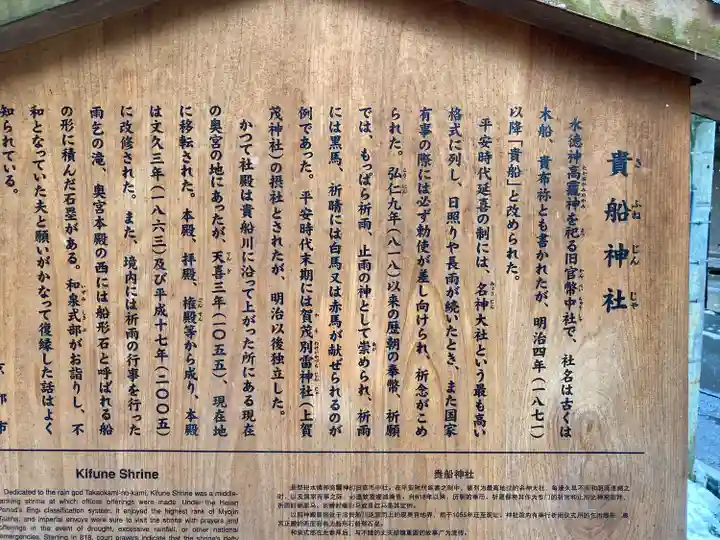 貴船神社
き ふね じん じゃ
水徳神高龗神を祀る旧官幣中社で、社名は古くは
木船、貴布祢とも書かれたが、明治四年(一八七一
以降「貴船」と改められた。
平安時代延喜の制には、名神大社という最も高い
格式に列し、日照りや長雨が続いたとき、また国家
有事の際には必ず勅使が差し向けられ、祈念がこめ
られた。弘仁九年(八一八)以来の歴朝の奉幣、祈願
では、もっぱら祈雨、止雨の神として崇められ、祈雨
には黒馬、祈晴には白馬又は赤馬が献ぜられるのが
例であった。平安時代末期には賀茂別雷神社(上賀
茂神社)の摂社とされたが、明治以後独立した。
かつて社殿は貴船川に沿って上がった所にある現在
の奥宮の地にあったが、天喜三年(一〇五五)、現在地
に移転された。本殿、拝殿、権殿等から成り、本殿
は文久三年(一八六三)及び平成十七年(二〇〇五)
に改修された。また、境内には祈雨の行事を行った
雨乞の滝、奥宮本殿の西には船形石と呼ばれる船
の形に積んだ石塁がある。和泉式部がお詣りし、不
和となっていた夫と願いがかなって復縁した話はよく
知られている。
京都市
Kifune Shrine
Dedicated to the rain god Takaokami-no-kami, Kifune Shrine was a middle-
ranking shrine at which offices offerings were made. Under the Heian
Period's Engi classification system, it enjoyed the highest rank of Myojin
Taisha, and imperial envoys were sure to visit the shrine with prayers and
offerings in the event of drought, excessive rainfall, or other national
emergencies. Starting in 818, court prayers indicate that the shrine's deity
贵船神社